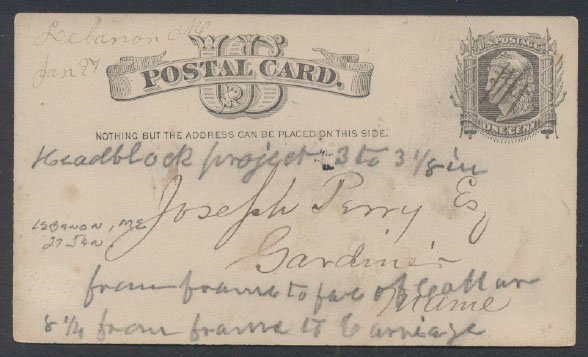 Lebanon Me
Jan 27
US
POSTAL CARD.
U.S. POSTAGE
ONE CENT
NOTHING BUT THE ADDRESS CAN BE PLACED ON THIS SIDE.
Headblock project - 3 to 3 1/8 in
Joseph Perry Esq
LEBANON, ME
27 JAN
Gardiner
from frame to face of Collar
Maine
8 1/4 from frame to Carriage